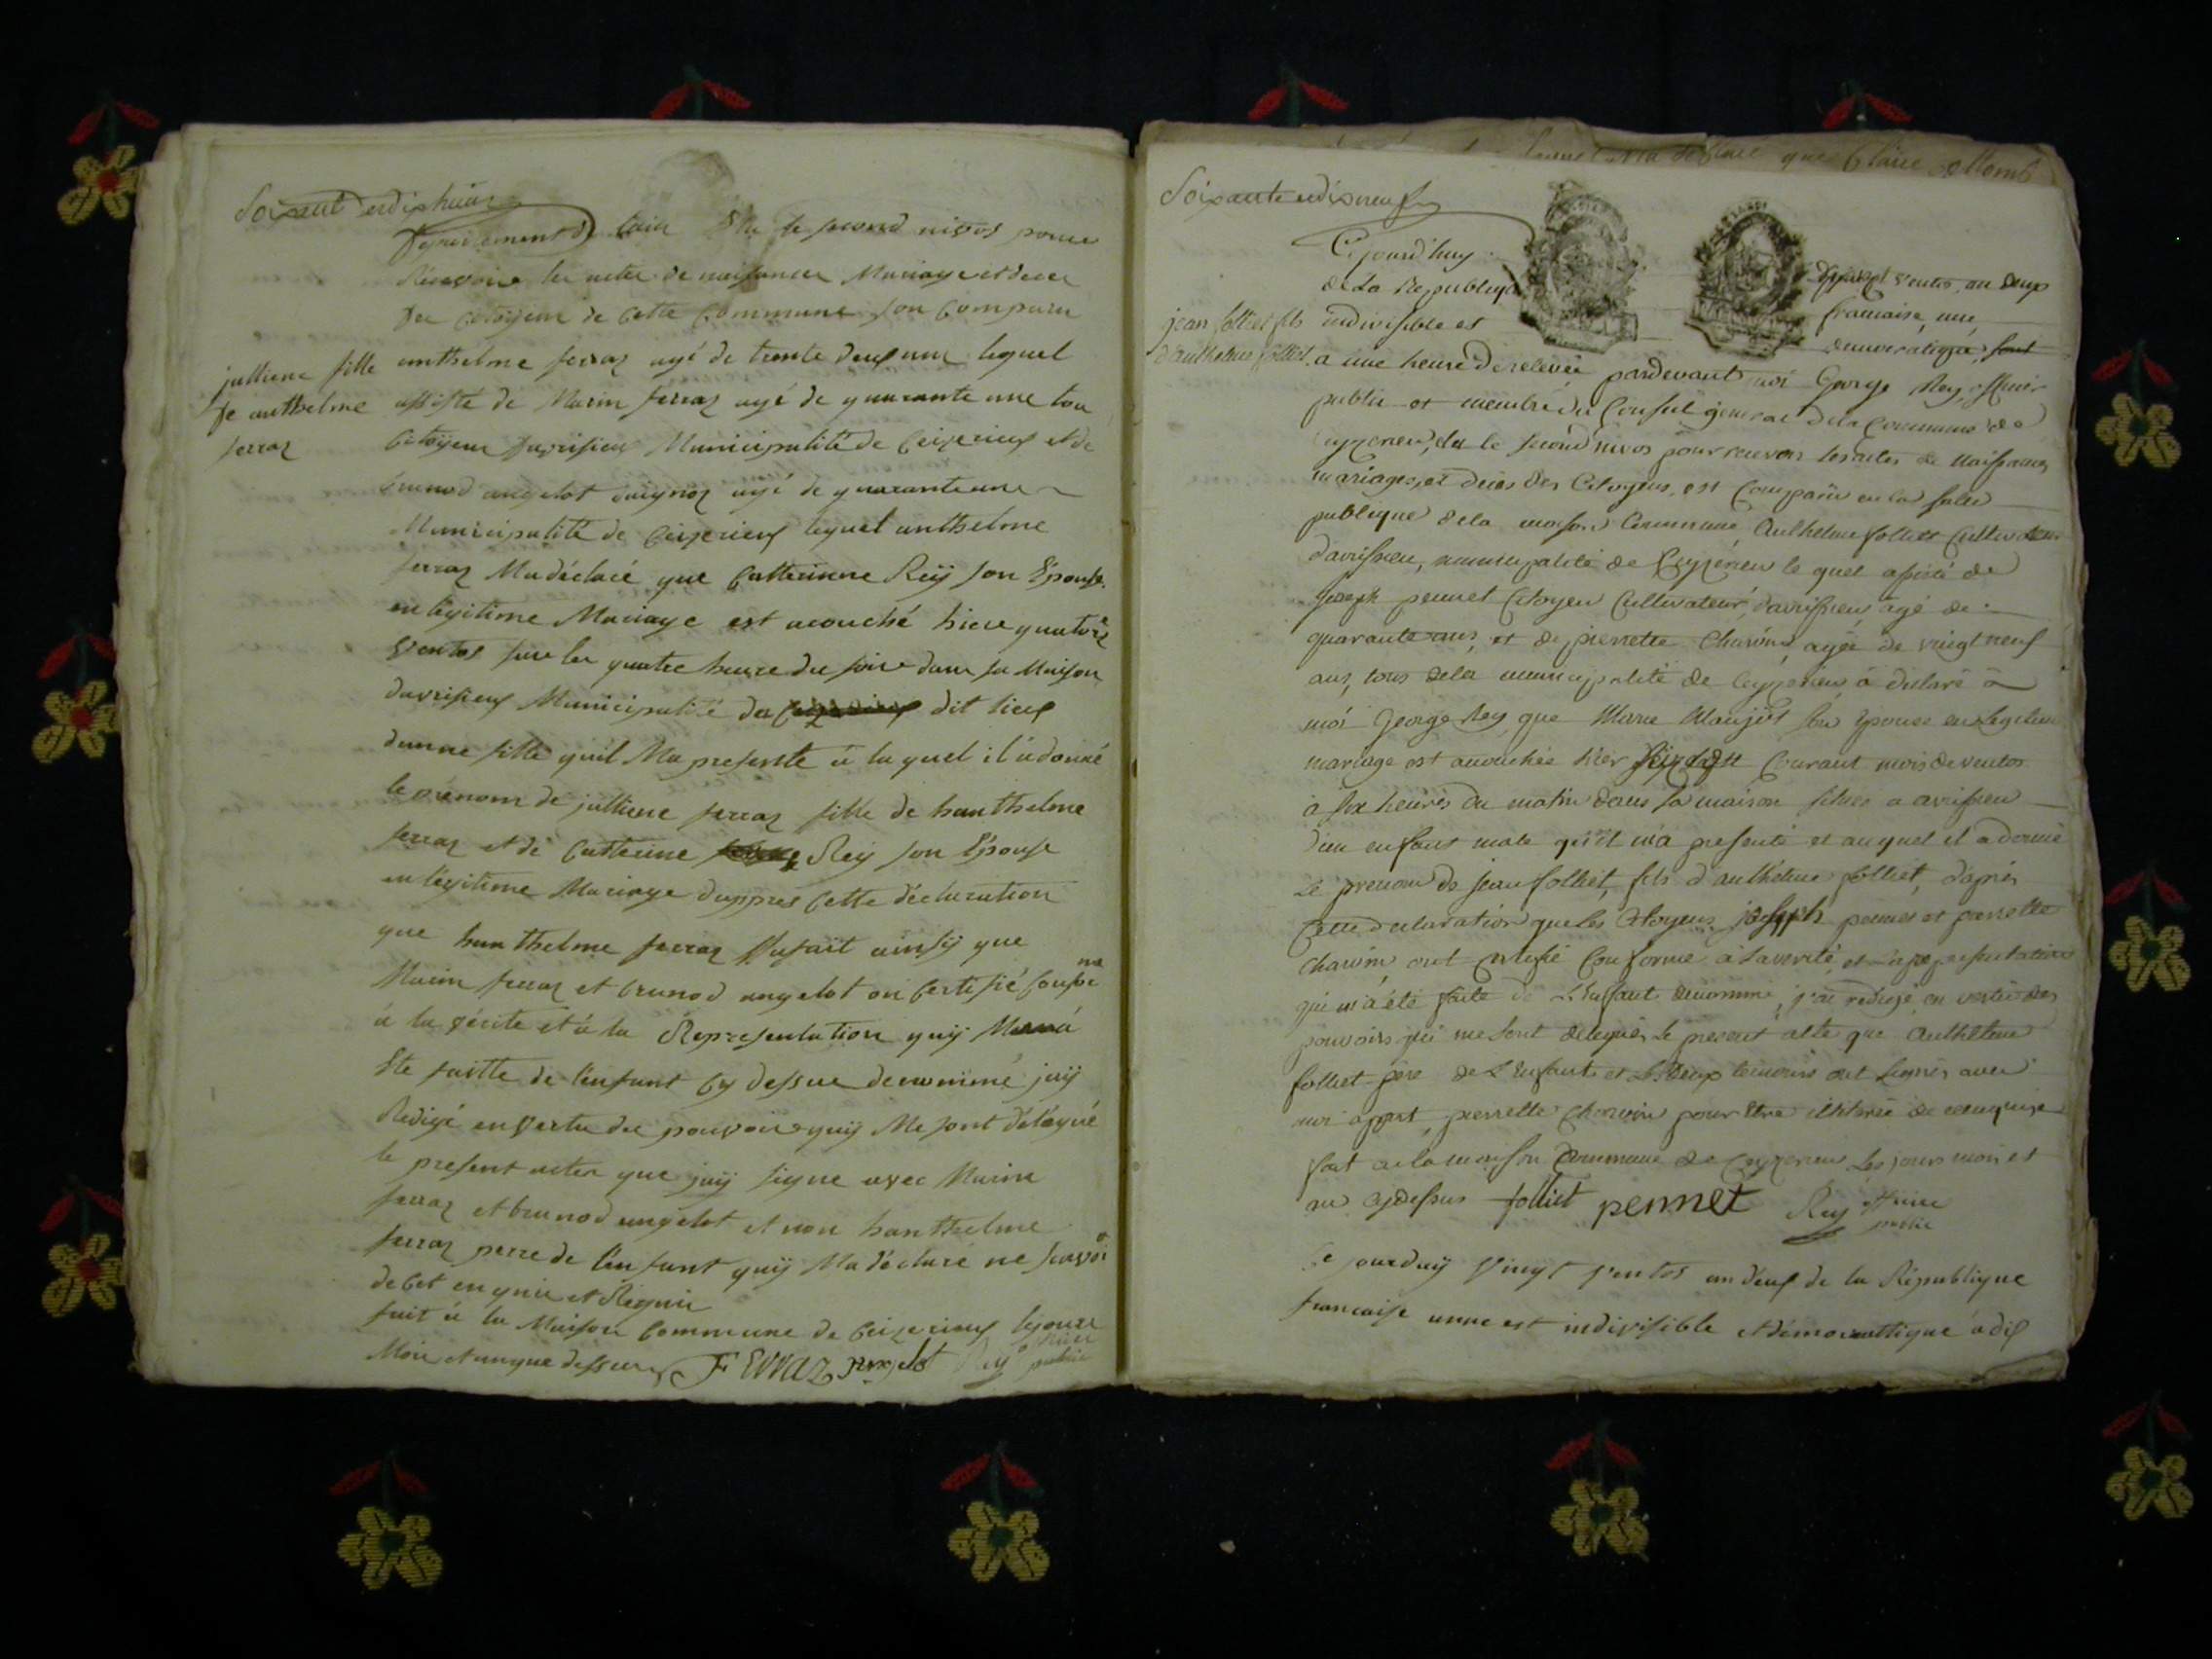 Soixant et dix huict
Département de lain Elu le second nivos pour
Recevoire les actes de naissances Mariage et deces
des citoijens de cette commune son comparu
julliene fille
de anthelme
ferraz
anthelme ferraz agé de trente deux ans lequel
assisté de Marin ferraz agé de quarante une tou
citoijens davrisieux Municipalité de ceizerieux et de
brunod angelot agé de quarante une
Municipalité de ceizerieux lequel anthelme
ferraz Ma déclaré que Catterinne Reij son Epouse
en légitime Mariage est acouché hiere quatorze
Ventos sur les quatre heure du soire dans sa Maison
davrisieux Municipalité du dit lieux
dunne fille quil Ma presente à laquel il à donné
le prénom de julliene ferraz fille de hanthelme
ferraz et de Catterine Reij son Epouse
en légitime Mariage dappres Cette déclaration
que hanthelme ferraz Ma fait ainsij que
Marin ferraz et brunod angelot on Certifié Confor me
à la vérite et à la Representation quij Ma
Ete faitte de lenfant Cy dessus denommé jaij
Redigé en Vertu des pouvoire quij Me sont délégué
le present actes que jaij signe avec Marin
ferraz et brunod angelot et non hanthelme
ferraz perre de lenfant quij Ma déclaré ne scavoir
de cet enquis et Requis
fait à la Maison Commune de ceizerieux le joure
Mois et an que dessus FERRAZ angelot Reij officier public
Soixante et dix neuf
Cejourd'huy ventos, an deux
de La Republique francaise, une
jean folliet fils
d'anthelme folliet
indivisible et democratique,
a une heure de relevée pardevant moi George Rey, officier
public et membre du Conseil general de la Commune de
Ceyzerieu, elu le second nivos pour recevoir les actes de Naissances
mariages, et deces des Citoyens, est Comparu en la salle
publique de la maison Commune, Anthelme folliet Cultivateur
d'avrissieu, municipalité de Ceyzerieu le quel assisté de
Joseph pennet Citoyen Cultivateur, d'avrissieu, agé de
quarante ans, et de pierrette Charvin, agée de vingt neuf
ans, tous de la municipalité de Ceyzerieu, à declaré à
moi George Rey, que Marie Maujot son Epouse en Legitime
mariage est accouchée hier Courant mois de ventos
à six heures du matin dans sa maison située a avrissieu
d'un enfant male qu'il m'a presenté et auquel il a donné
Le prenom de jean folliet, fils d'anthelme folliet, d'après
Cette declaration que les Citoyens joseph pennet et pierrette
Charvin ont certifié Conforme à la verité, et la representation
qui m'a été faite de L'Enfant denommé, j'ai redigé en vertu des
pouvoirs qui me sont delegués le present acte que Anthelme
folliet père de L'Enfant et Les deux temoins ont signés avec
moi apart, pierrette Charvin pour Etre illiterée de ce enquise
fait a la maison Commune de Ceyzerieu les jours mois et
an cydessus folliet pennet Rey officier public
Ce jourduij Vingt Ventos an deux de la République
francaise unne est indivisible et démocrattique à dix